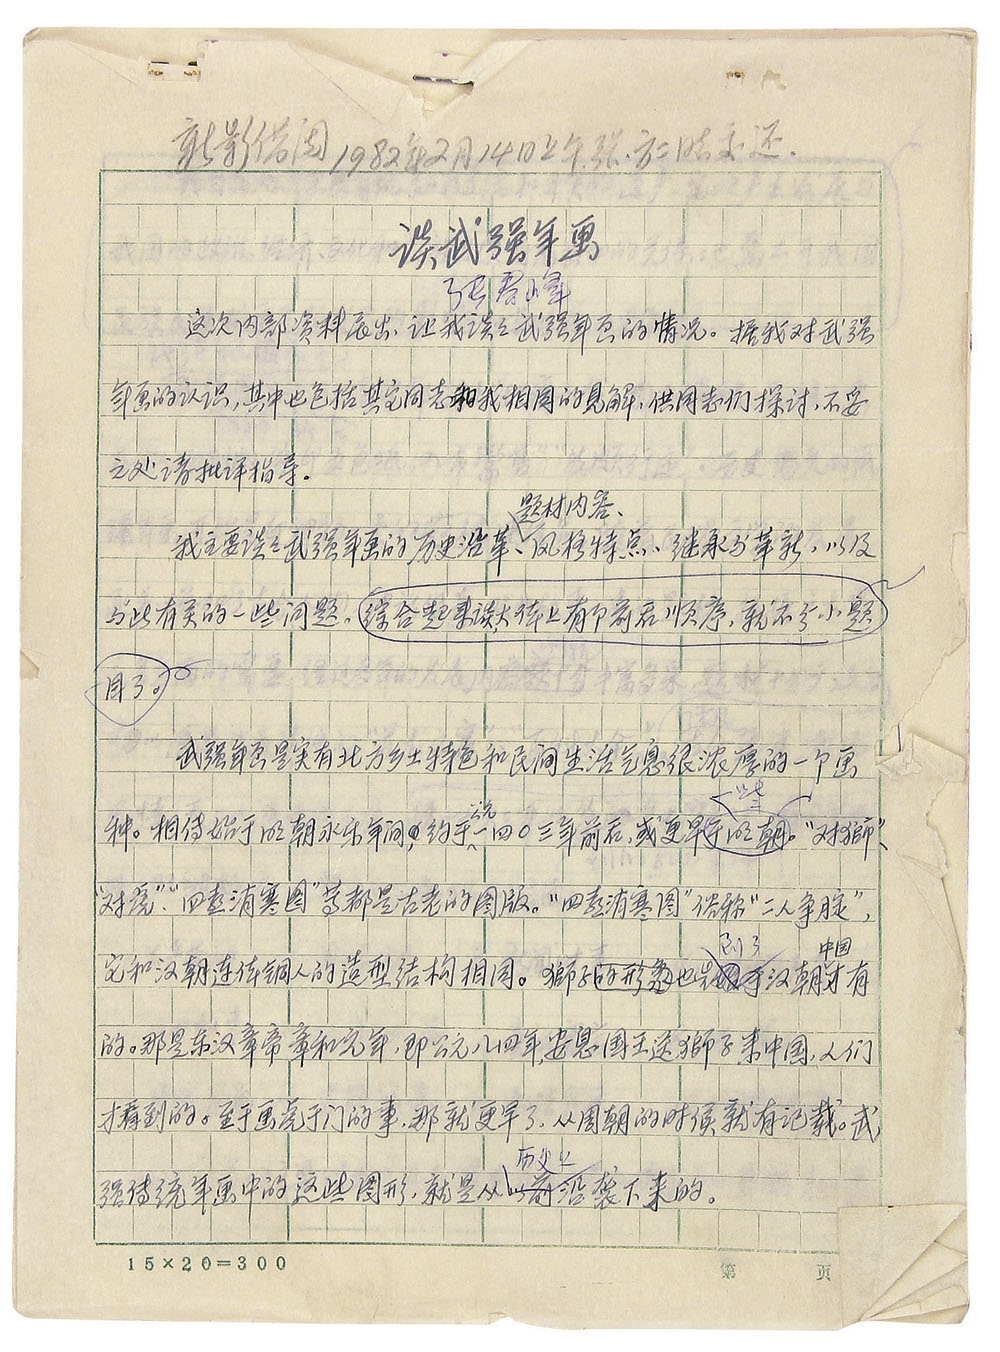 新影借阅 1982年2月14日上午张、方二口交还.
谈武强年画
张春峰
这次内部资料展出、让我谈谈武强年画的情况。据我对武强
年画的认识,其中也包括其它同志和我相同的見解,供同志们探讨,不妥
之处请批评指导。
题材内容、
我主要谈谈武强年画的历史沿革、风格特点、继承与革新,以及
与此有关的一些问题。综合起来谈,大体上有个前后顺序,就不分小题
目了。
武强年画是实有北方乡土特色和民间生活气息很浓厚的一个画
此
种。相传始于明朝永乐年间,约于公元一四〇三年前后,或更早于明朝。“对獅”、
“对虎”、“四喜消寒图”等都是古老的图版。“四喜消寒图”俗称“二人争脏”,
到了 中国
它和汉朝连体铜人的造型结构相同。獅子的形象也是汉朝才有
的。那是东汉章帝章和元年,即公元八四年,安息国王送獅子来中国,人们
才看到的。至于画虎于门的事,那就更早了,从周朝的时侯就有记载。武
历史上
强传统年画中的这些图形,就是从以前沿袭下来的。
15×20=300
第 页